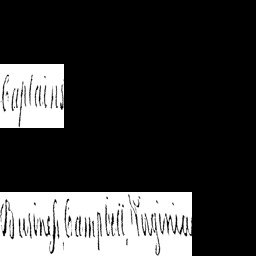 Captains
Business, Campbell, Virginia